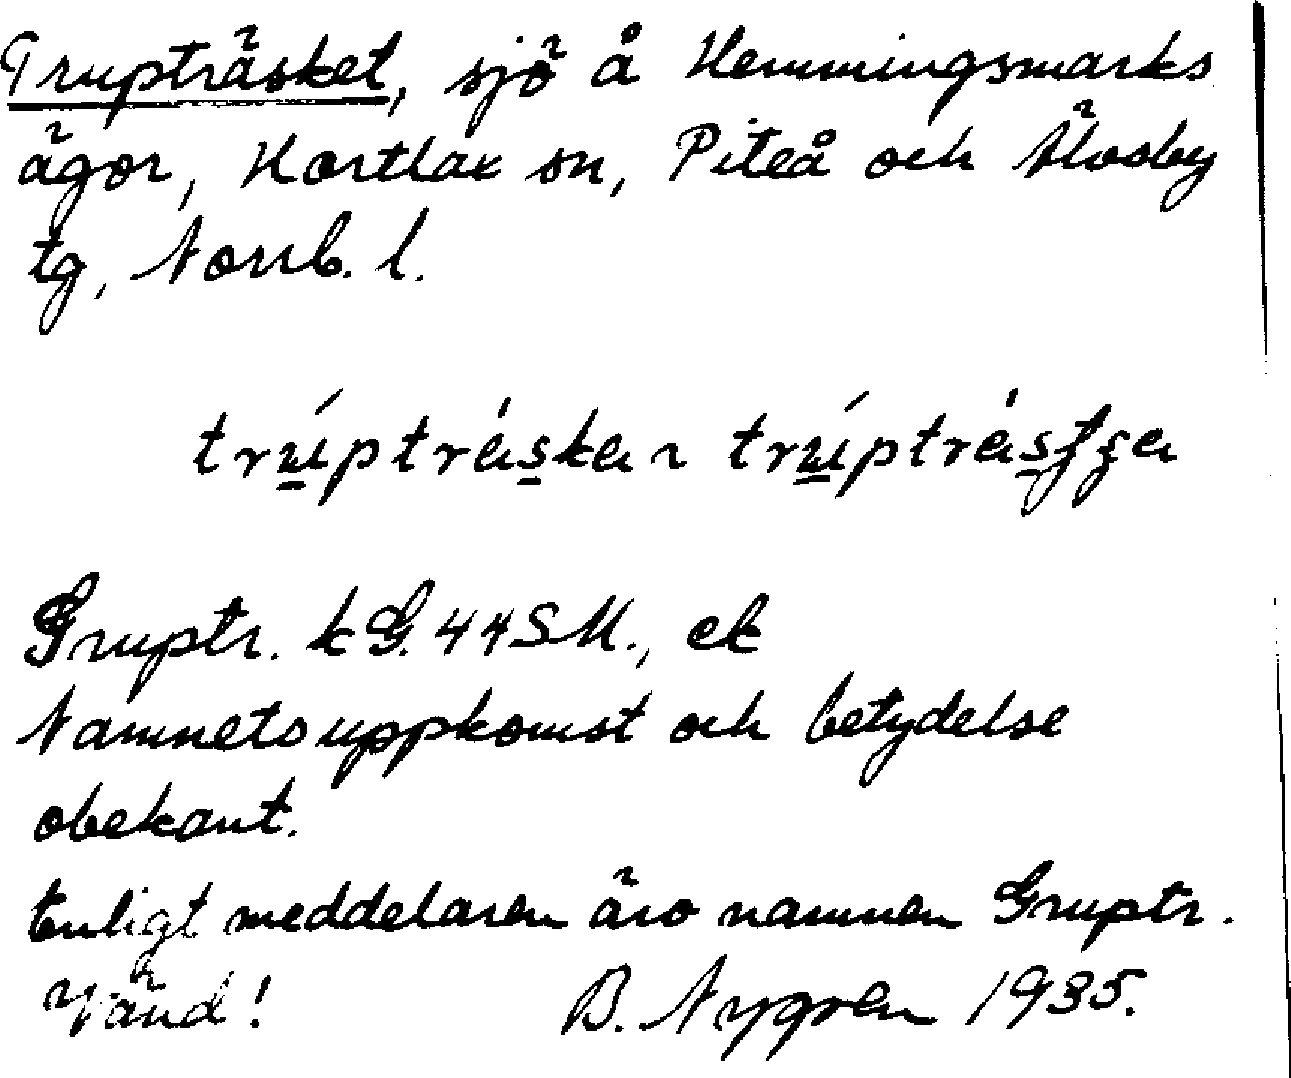 Grupträsket, sjö å Hemmingsmarks
ägor, Hortlax sn, Piteå och Älvsby
tg, Norrb. l.
trúpträska ~ trúpträsʃʒa
Gruptr. kG. 44SM., ek
Namnets uppkomst och betydelse
obekant.
Enligt meddelaren äro namnen Gruptr.
Vänd! B. Nygren 1935.